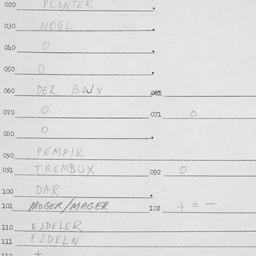 020 PLONTER
030 NOGL
040 0
050 0
060 DER BAJX 061
070 0 071 0
080 0
090 PEMPIK
091 TREMBUX 092 0
100 DAR
101 MOGER/MAGER 102 + = -
110 EJDELER
111 EJDELN